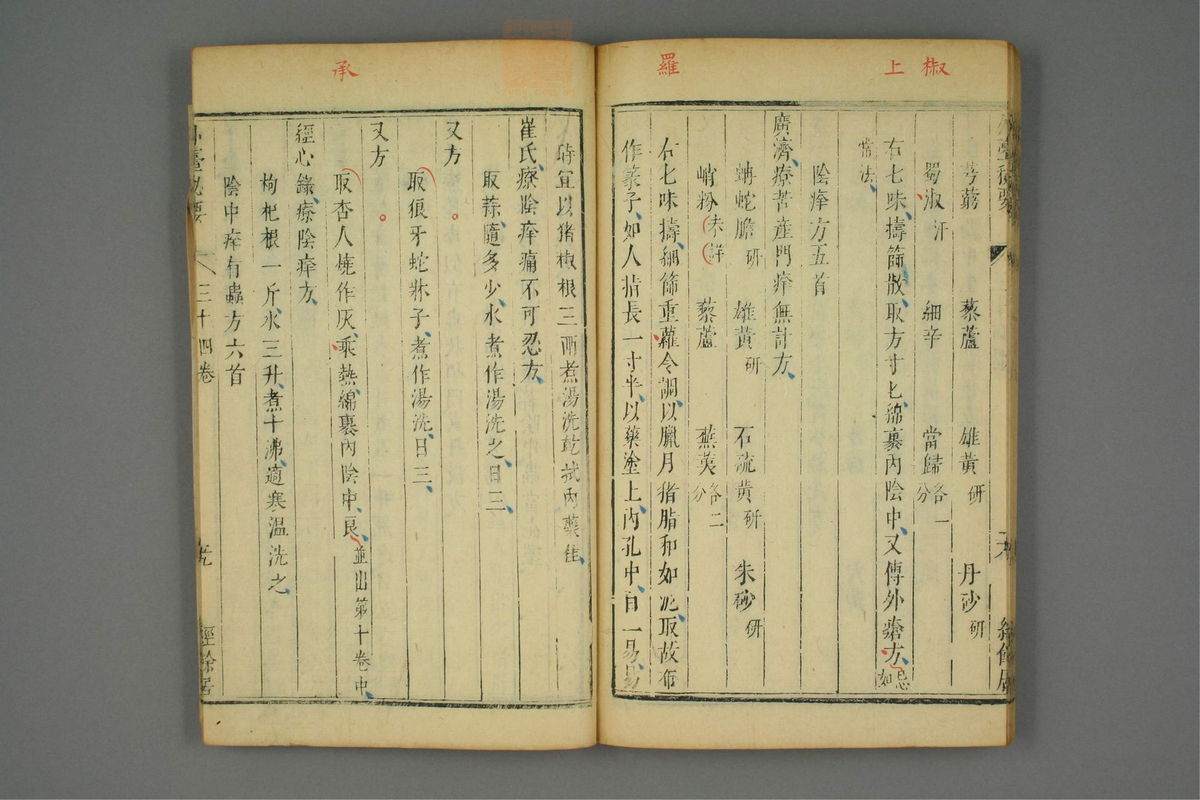 椒上
羅
芎藭 藜蘆 雄黃研 丹砂研
蜀淑汗 細辛 當歸各一分
右七味擣篩散取方寸匕綿裹內陰中又傅外瘡方忌如
常法
陰痒方五首
廣濟療苦產門痒無計方
蚺蛇膽研 雄黃研 石硫黃研 朱砂研
峭粉未詳 藜蘆 蕪荑各二分
右七味擣細篩重蘿令調以臘月猪脂和如泥取故布
作篆子如人指長一寸半以藥塗上內孔中日一易易
承
時宜以猪椒根三兩煮湯洗乾拭內藥佳
崔氏療陰痒痛不可忍方
取蒜隨多少水煮作湯洗之日三
又方
取狼牙蛇牀子煮作湯洗日三
又方
取杏人燒作灰乘熱綿裹內陰中良並出第十卷中
經心錄療陰痒方
枸杞根一斤水三升煮十沸適寒溫洗之
陰中痒有蟲方六首
三十四卷
經餘居